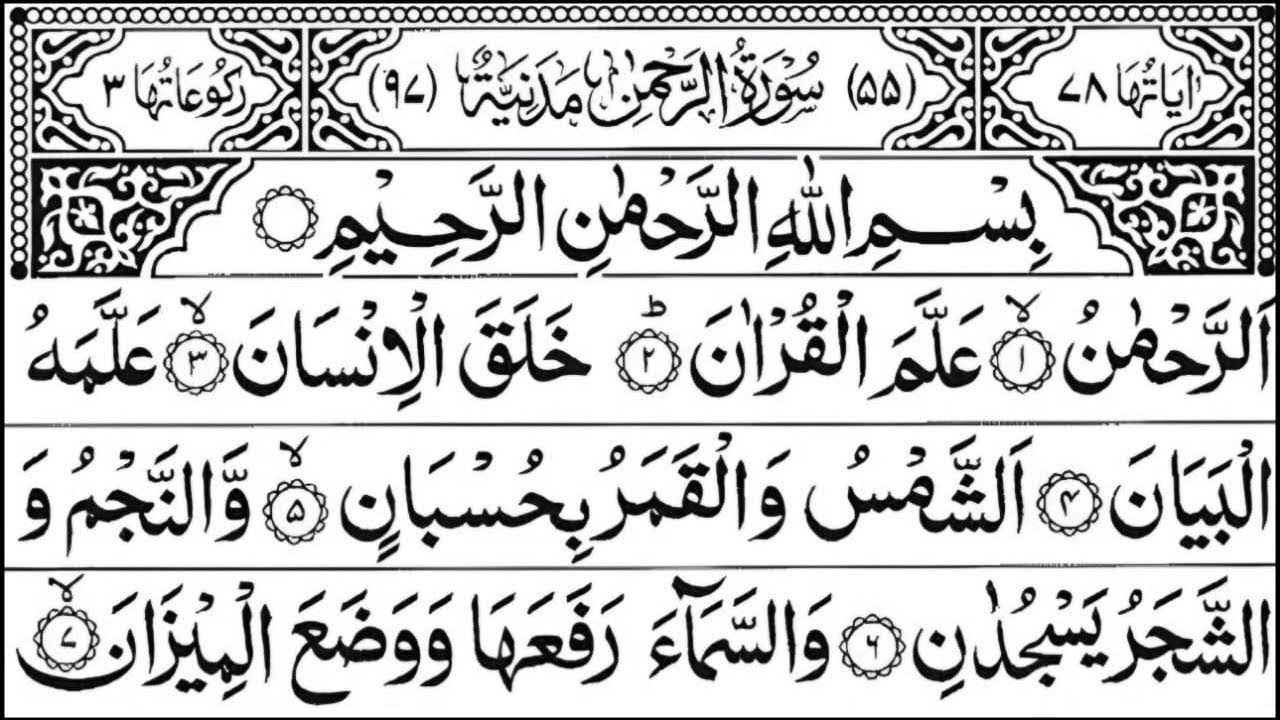 اٰيَاتُهَا ٧٨ (٥٥) سُوْرَةُ الرَّحْمٰنِ مَدَنِيَّةٌ (٩٧) رُكُوْعَاتُهَا ٣
بِسْمِ اللّٰهِ الرَّحْمٰنِ الرَّحِيْمِ
اَلرَّحْمٰنُ ۙ‏﴿١﴾ عَلَّمَ الْقُرْاٰنَ ؕ‏﴿٢﴾ خَلَقَ الْاِنْسَانَ ۙ‏﴿٣﴾ عَلَّمَهُ
الْبَيَانَ ﴿۴﴾ اَلشَّمْسُ وَالْقَمَرُ بِحُسْبَانٍ ۙ‏﴿۵﴾ وَّالنَّجْمُ وَ
الشَّجَرُ يَسْجُدٰنِ ﴿۶﴾ وَالسَّمَآءَ رَفَعَهَا وَوَضَعَ الْمِيْزَانَ ۙ‏﴿٧﴾